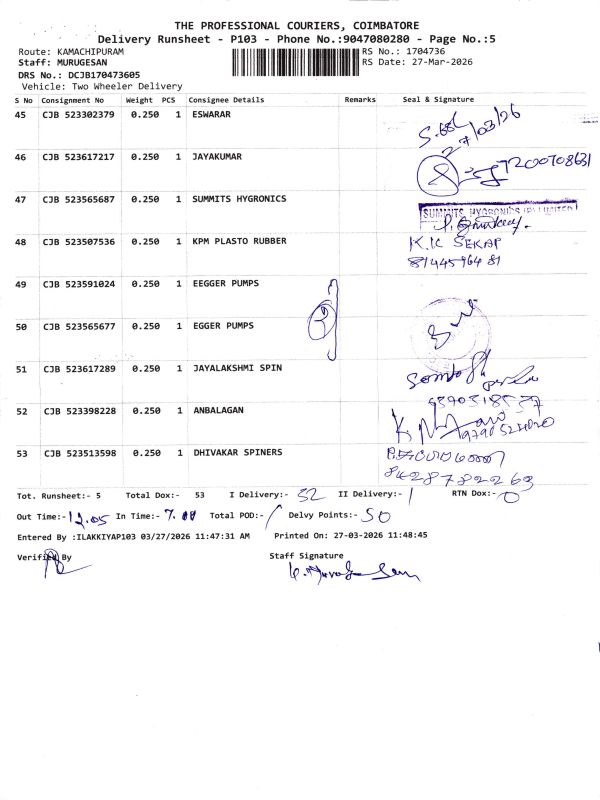 THE PROFESSIONAL COURIERS, COIMBATORE
Delivery Runsheet - P103 - Phone No.:9047080280 - Page No.:5
Route: KAMACHIPURAM RS No.: 1704736
Staff: MURUGESAN RS Date: 27-Mar-2026
DRS No.: DCJB170473605
Vehicle: Two Wheeler Delivery
S No Consignment No Weight PCS Consignee Details Remarks Seal & Signature
45 CJB 523302379 0.250 1 ESWARAR
27/03/26
46 CJB 523617217 0.250 1 JAYAKUMAR
7200708631
47 CJB 523565687 0.250 1 SUMMITS HYGRONICS
SUMMITS HYGRONICS (P) LIMITED
48 CJB 523507536 0.250 1 KPM PLASTO RUBBER K.K SEKAP
49 CJB 523591024 0.250 1 EEGGER PUMPS
50 CJB 523565677 0.250 1 EGGER PUMPS
51 CJB 523617289 0.250 1 JAYALAKSHMI SPIN
52 CJB 523398228 0.250 1 ANBALAGAN
53 CJB 523513598 0.250 1 DHIVAKAR SPINERS
8428782263
Tot. Runsheet:- 5 Total Dox:- 53 I Delivery:- 52 II Delivery:- 1 RTN Dox:- 0
Out Time:- 12.05 In Time:- 7.00 Total POD:- / Delvy Points:- 50
Entered By :ILAKKIYAP103 03/27/2026 11:47:31 AM Printed On: 27-03-2026 11:48:45
Verified By Staff Signature